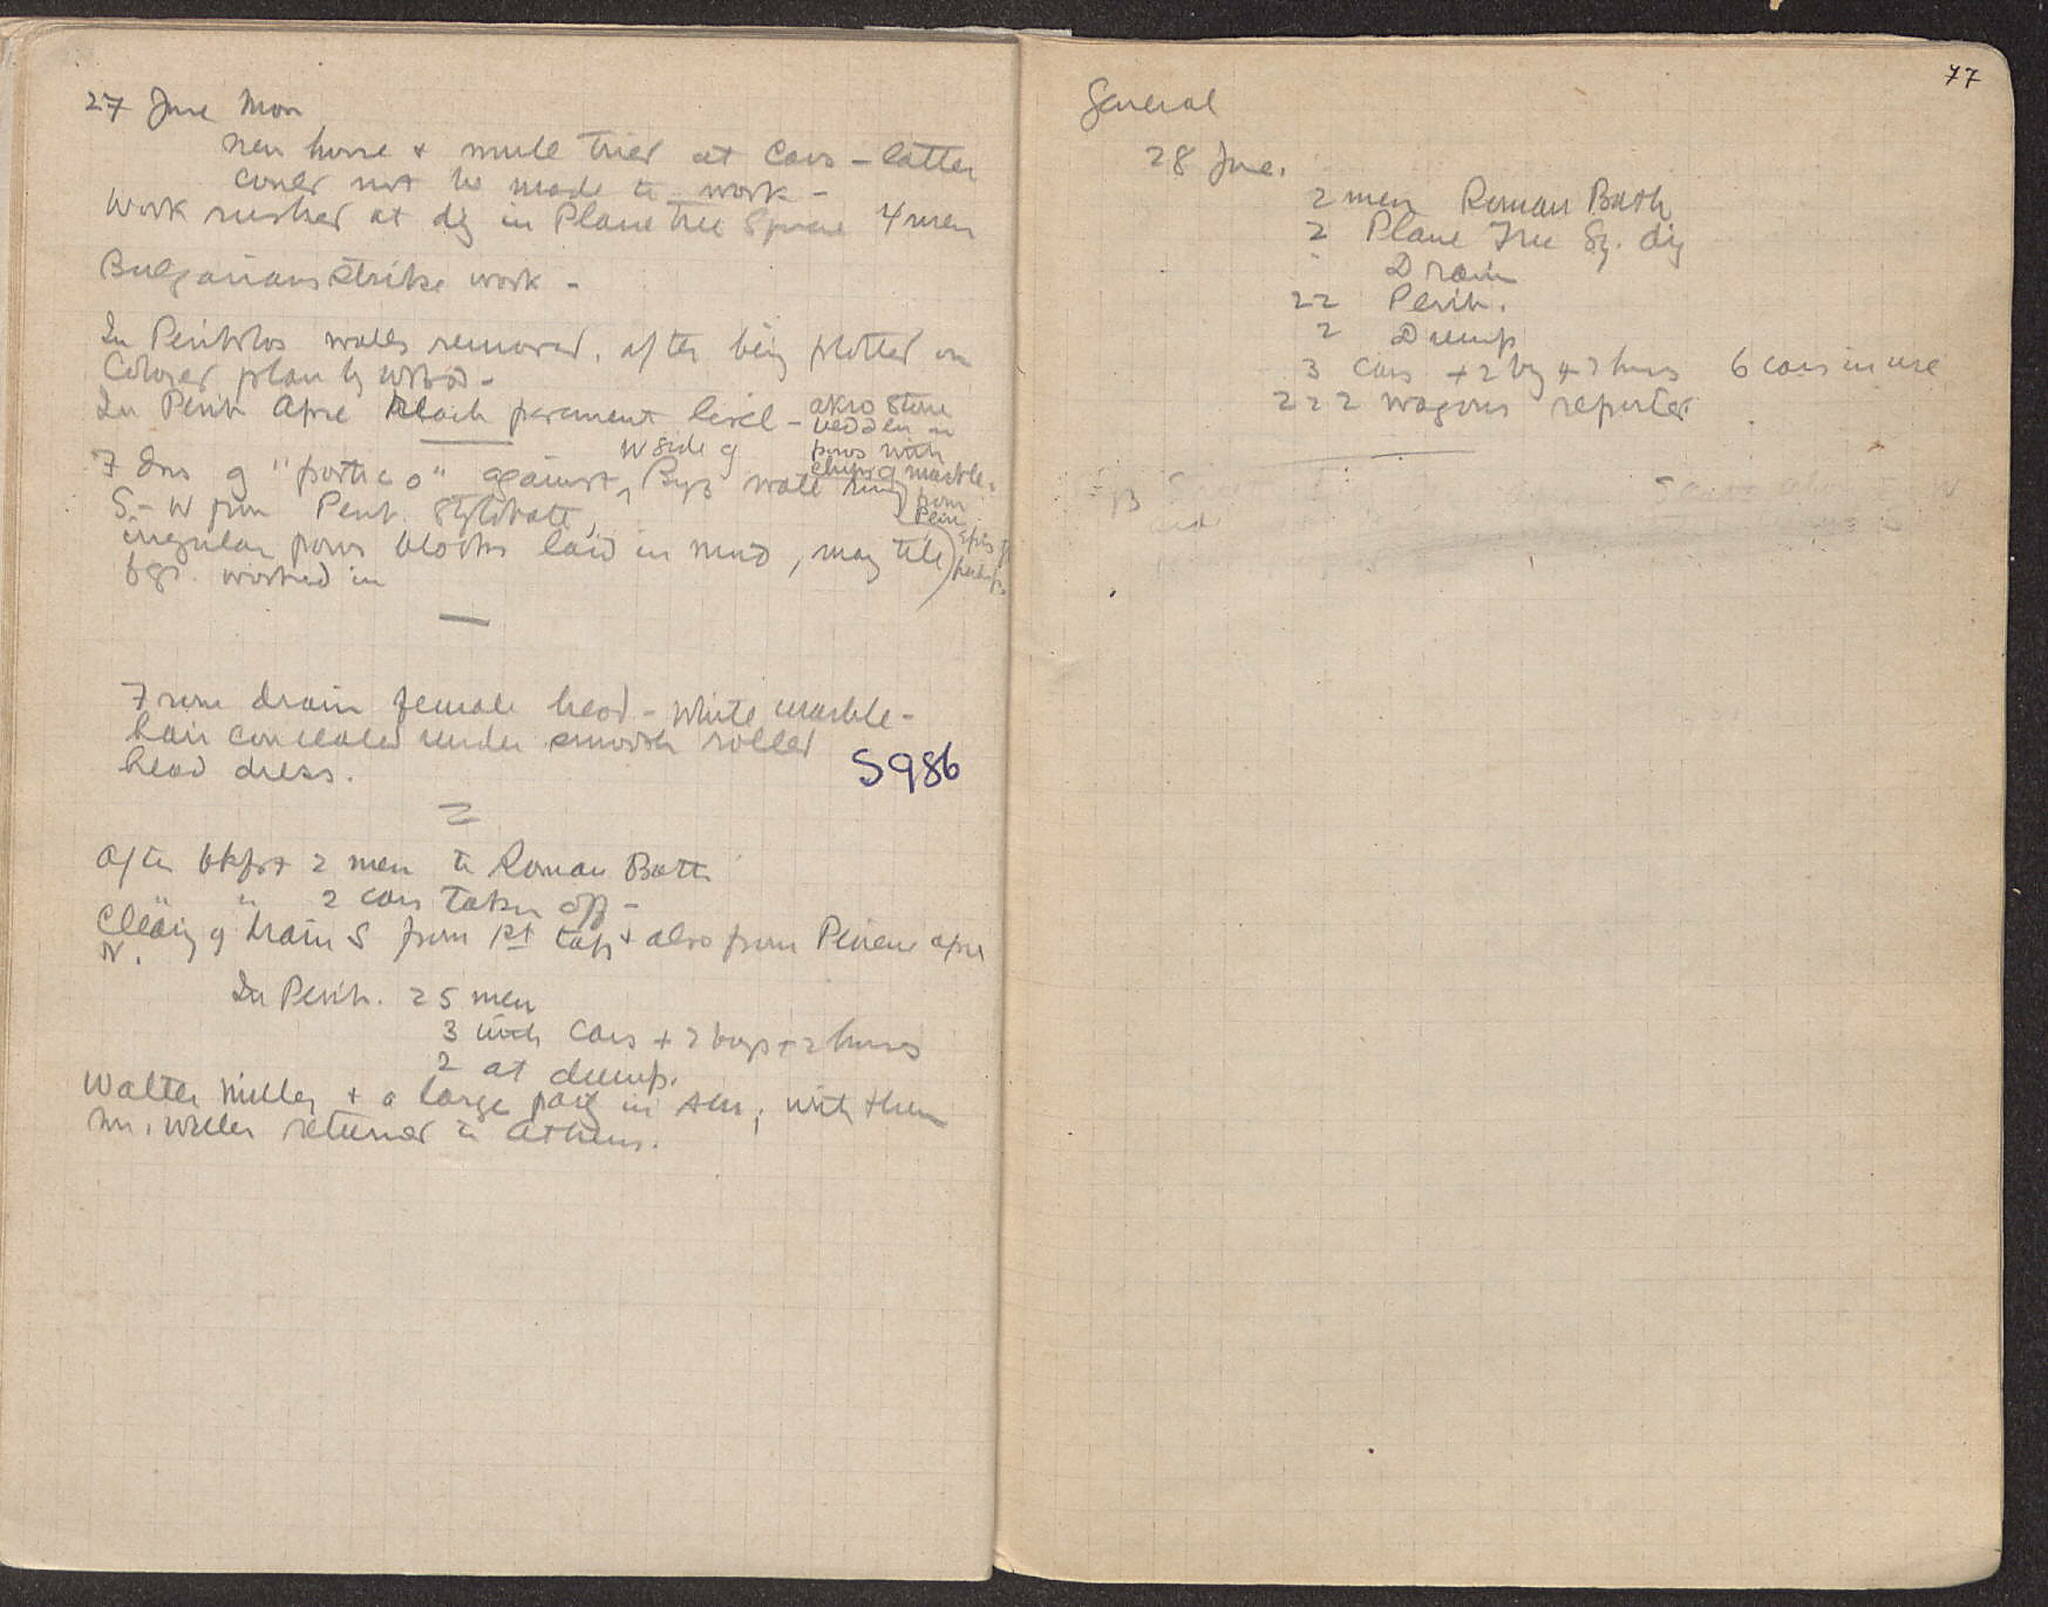 27 June Mon
New horse + mule tried at cars – latter
could not be made to work –
Work rushed at dig in Plane Tree Square 4 men
Bulgarians strike work –
In Peribolos walls removed, after being plotted on
Colored plan by
In Perib Apse Reach pavement level –
akro stone
bedded in
poros with
chips of marble.
Fdns of "portico" against W side of Byz wall running from Peir.
S – W from Perib. Stylobate,
irregular poros blocks laid in mud, many tile
fgs. worked in
From drain female head – white marble –
hair concealed under smooth rolled
head dress.
S 986
After bkfst 2 men to Roman Bath
" " 2 cars taken off –
Clearing of drain S from 1st tap + also from Peirene apse
N.
In Perib. 25 men
3 with cars + 2 boys + 2 horses
2 at dump.
Walter Miller + a large party in ; with them
Mr. Weller returned to Athens.
77
General
28 June.
2 men Roman Bath
2 Plane Tree Sq. dig
Drain
22 Perib.
2 Dump
3 cars + 2 boy + 2 horses 6 cars in use
222 wagons reported